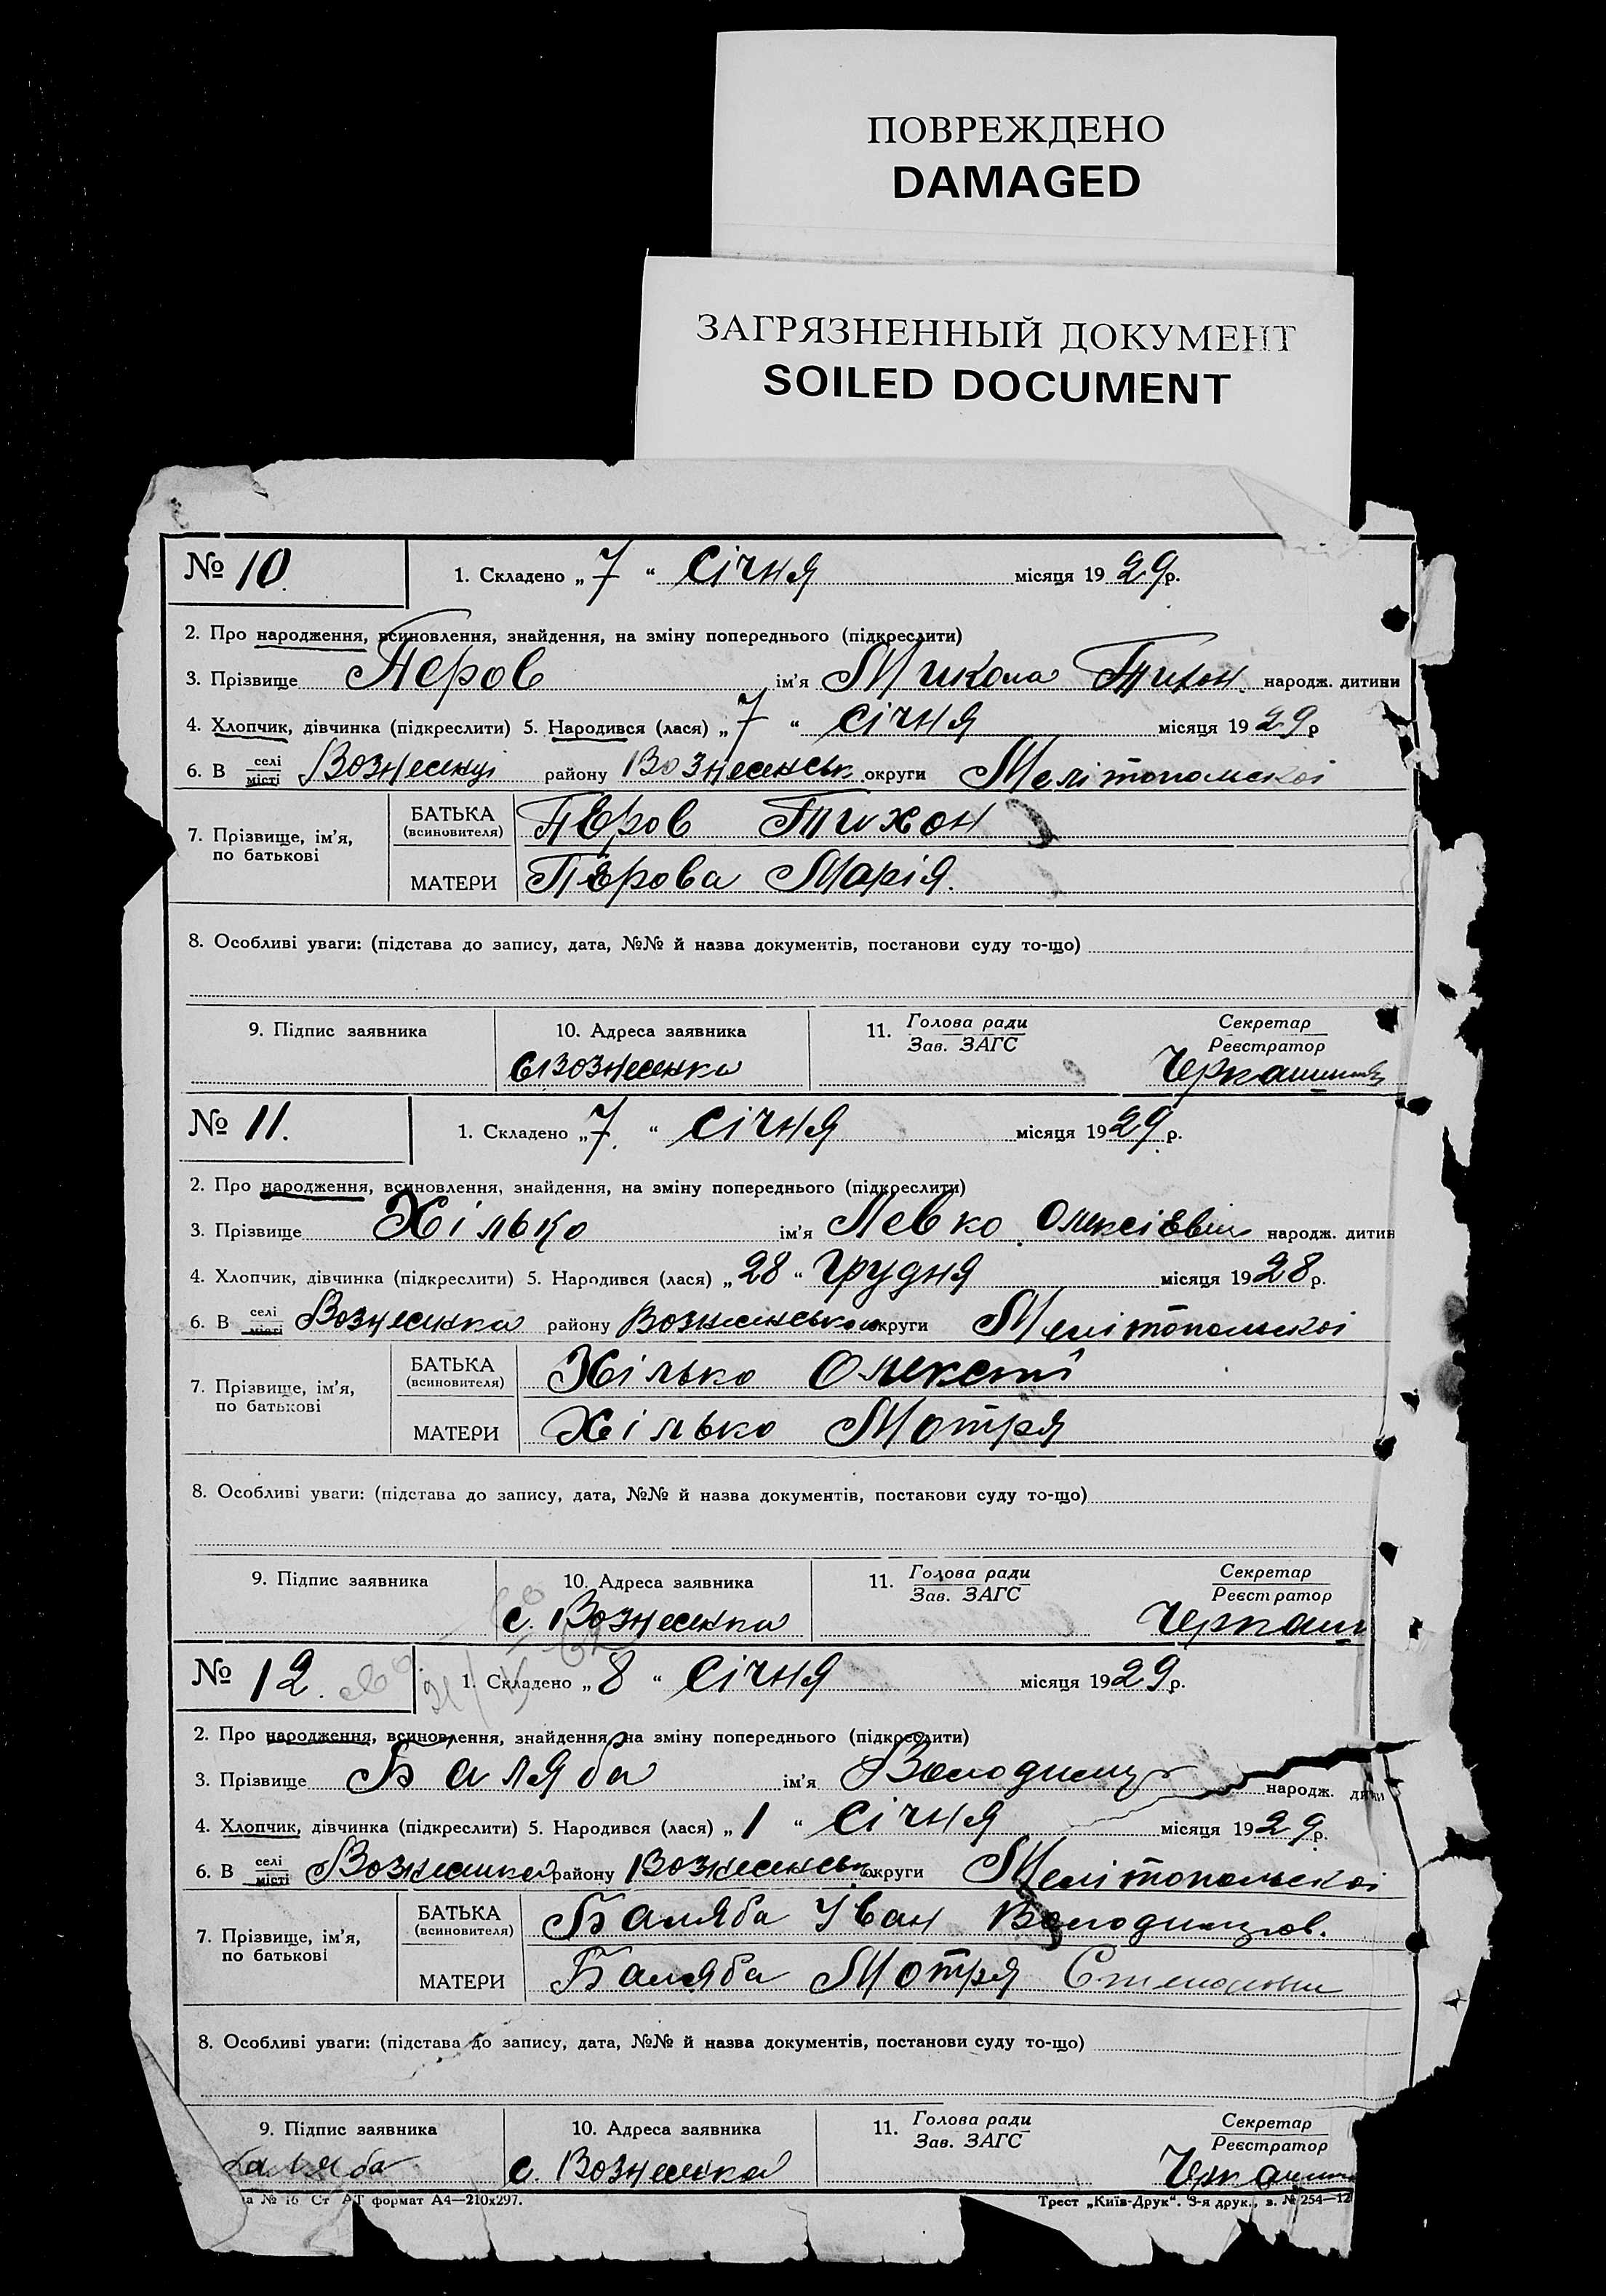 ПОВРЕЖДЕНО
DAMAGED
ЗАГРЯЗНЕННЫЙ ДОКУМЕНТ
SOILED DOCUMENT
№ 10. 1. Складено „ 7 “ Січня місяця 19 29 р.
2. Про народження, всиновлення, знайдення, на зміну попереднього (підкреслити)
3. Прізвище Перов ім'я Микола Тихон. народж. дитини
4. Хлопчик, дівчинка (підкреслити) 5. Народився (лася) „ 7 “ січня місяця 19 29 р
6. В селі місті Вознесенці району Вознесенськ округи Мелітопольскої
7. Прізвище, ім'я, по батькові
БАТЬКА (всиновителя) Пєров Тихон
МАТЕРИ Пєрова Марія.
8. Особливі уваги: (підстава до запису, дата, №№ й назва документів, постанови суду то-що)
9. Підпис заявника 10. Адреса заявника 11. Голова ради Зав. ЗАГС Секретар Реєстратор
Вознесенка
№ 11. 1. Складено „ 7. “ січня місяця 19 29 р.
2. Про народження, всиновлення, знайдення, на зміну попереднього (підкреслити)
3. Прізвище Хілько ім'я Левко Олексієвич народж. дитин
4. Хлопчик, дівчинка (підкреслити) 5. Народився (лася) „ 28 “ Грудня місяця 19 28 р.
6. В селі місті Вознесенка району округи Мелітопольскої
7. Прізвище, ім'я, по батькові
БАТЬКА (всиновителя) Хілько Олексій
МАТЕРИ Хілько Мотря
8. Особливі уваги: (підстава до запису, дата, №№ й назва документів, постанови суду то-що)
9. Підпис заявника 10. Адреса заявника 11. Голова ради Зав. ЗАГС Секретар Реєстратор
с. Вознесенка Черкаш
№ 12. 1. Складено „ 8 “ Січня місяця 19 29 р.
2. Про народження, всиновлення, знайдення, на зміну попереднього (підкреслити)
3. Прізвище Баляба ім'я Володимир народж. дити
4. Хлопчик, дівчинка (підкреслити) 5. Народився (лася) „ 1 “ Січня місяця 19 29 р.
6. В селі місті Вознесенка району Вознесенськ округи Мелітопольскої
7. Прізвище, ім'я, по батькові
БАТЬКА (всиновителя) Баляба Іван Володимиров.
МАТЕРИ Баляба Мотря
8. Особливі уваги: (підстава до запису, дата, №№ й назва документів, постанови суду то-що)
9. Підпис заявника 10. Адреса заявника 11. Голова ради Зав. ЗАГС Секретар Реєстратор
аляба с. Вознесенка
а № 16 Ст АТ формат А4—210х297. Трест „Київ-Друк“. 3-я друк., з. № 254—12